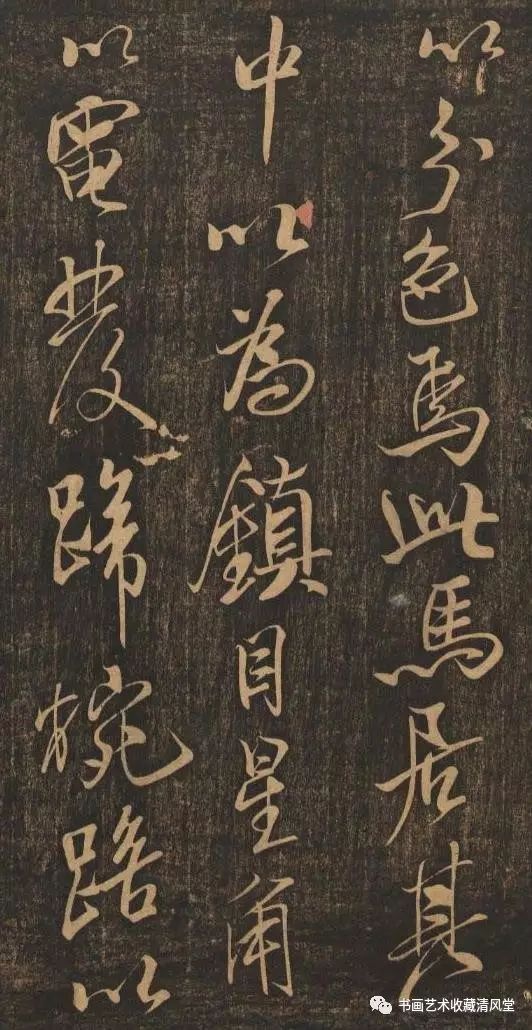 以分色焉此馬居其
中以為鎮目星角
以電發蹄椀踣以
书画艺术收藏清风堂